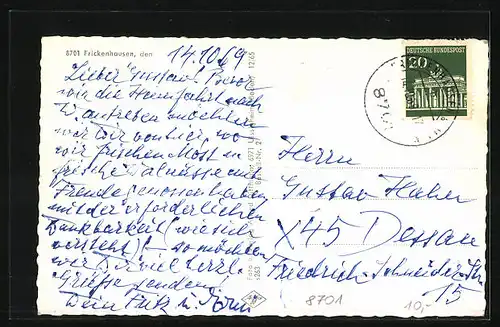 8701 Frickenhausen, den 14.10.69
Lieber Gustav! Bevor
wir die Heimfahrt nach
W. antreten möchten
wir Dir von hier, wo
wir frischen Most u.
frische Walnüsse mit
Freude genossen haben
mit der erforderlichen
Dankbarkeit (wie sich
versteht)! so möchten
wir Dir viel herzl.
Grüsse senden!
Dein Fritz u.
DEUTSCHE BUNDESPOST
20
8701
Herrn
Gustav
X45 Dessau
Friedrich-Schneider-Str.
15
8701
10,-